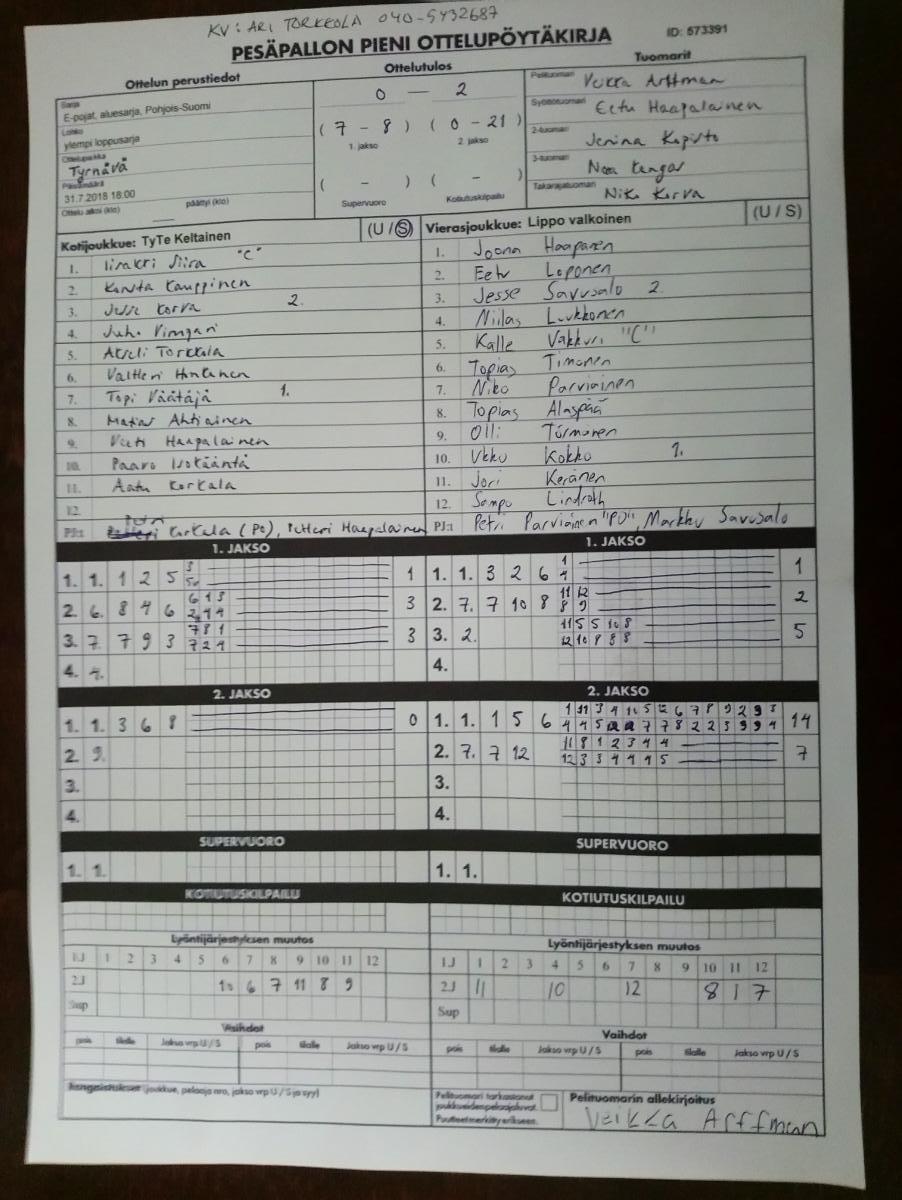 KV: ARI TORKKOLA 040-5432687
PESÄPALLON PIENI OTTELUPÖYTÄKIRJA
ID: 573391
Ottelun perustiedot
Sarja
E-pojat, aluesarja, Pohjois-Suomi
Lohko
ylempi loppusarja
Ottelupaikka
Tyrnävä
Päivämäärä
31.7.2018 18:00
Ottelu alkoi (klo) päättyi (klo)
Ottelutulos
0 – 2
(7 - 8) (0 - 21)
1. jakso 2. jakso
( - ) ( - )
Supervuoro Kotiutuskilpailu
Tuomarit
Pelituomari Veikka Arffman
Syöttötuomari Eetu Haapalainen
2-tuomari Jenina Kopisto
3-tuomari Noora Kangas
Takarajatuomari Niko Korva
Kotijoukkue: TyTe Keltainen (U / S)
1. Iisakki Siira "C"
2. Konsta Kauppinen
3. Jesse Korva 2.
4. Juho
5. Akseli Torkkola
6. Valtteri
7. Topi Väätäjä 1.
8. Matias Ahtiainen
9. Veeti Haapalainen
10. Paavo Isokääntä
11. Aatu Korkala
12.
PJ:t Korkala (PO), Petteri Haapalainen
Vierasjoukkue: Lippo valkoinen (U / S)
1. Joona Haapanen
2. Eetu Loponen
3. Jesse Savusalo 2.
4. Niilas Luukkonen
5. Kalle Vakkuri "C"
6. Topias Timonen
7. Niko Parviainen
8. Topias Alaspää
9. Olli Törmänen
10. Ukko Kokko 1.
11. Jori Keränen
12. Sampo Lindroth
PJ:t Petri Parviainen "PJ", Markku Savusalo
1. JAKSO
1. 1. 1 2 5 1
2. 6. 8 4 6 3
3. 7. 7 9 3 3
4.
1. JAKSO
1. 1. 3 2 6 1 1
4
2. 7. 7 10 8 11 12 2
8 9
3. 2. 11 5 5 10 8 5
12 10 8 8 8
4.
2. JAKSO
1. 1. 3 6 8 0
2. 9.
3.
4.
2. JAKSO
1. 1. 1 5 6 14
2. 7. 7 12 11 8 1 2 3 4 4 7
12 3 3 4 4 4 5
3.
4.
SUPERVUORO
1. 1.
SUPERVUORO
1. 1.
KOTIUTUSKILPAILU
KOTIUTUSKILPAILU
Lyöntijärjestyksen muutos
1J 1 2 3 4 5 6 7 8 9 10 11 12
2J 10 6 7 11 8 9
Sup
Lyöntijärjestyksen muutos
1J 1 2 3 4 5 6 7 8 9 10 11 12
2J 11 10 12 8 1 7
Sup
Vaihdot
pois tilalle Jakso vrp U / S pois tilalle Jakso vrp U / S
Vaihdot
pois tilalle Jakso vrp U / S pois tilalle Jakso vrp U / S
Rangaistukset (joukkue, pelaaja nro, jakso vrp U / S ja syy)
Pelituomari tarkastanut
joukkueiden pelaajaluvat.
Puutteet merkitty erikseen.
Pelituomarin allekirjoitus
Veikka Arffman